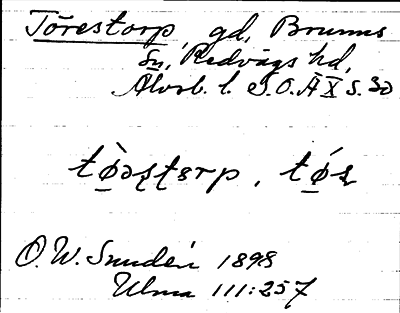 Törestorp, gd, Brunns
sn, Redvägs hd,
Älvsb. l. S.O.Ä X s. 30
tø̀əʂʈɞrp, tǿʂ
O. W. Smedén 1898
Ulma 111:257